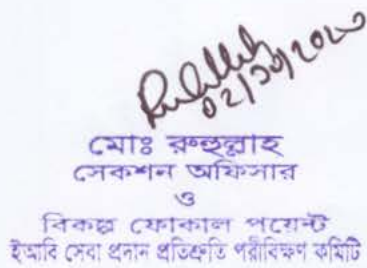 ০২/১১/২০২৩
মোঃ রুহুল্লাহ
সেকশন অফিসার
ও
বিকল্প ফোকাল পয়েন্ট
ইআবি সেবা প্রদান প্রতিশ্রুতি পরীবিক্ষণ কমিটি